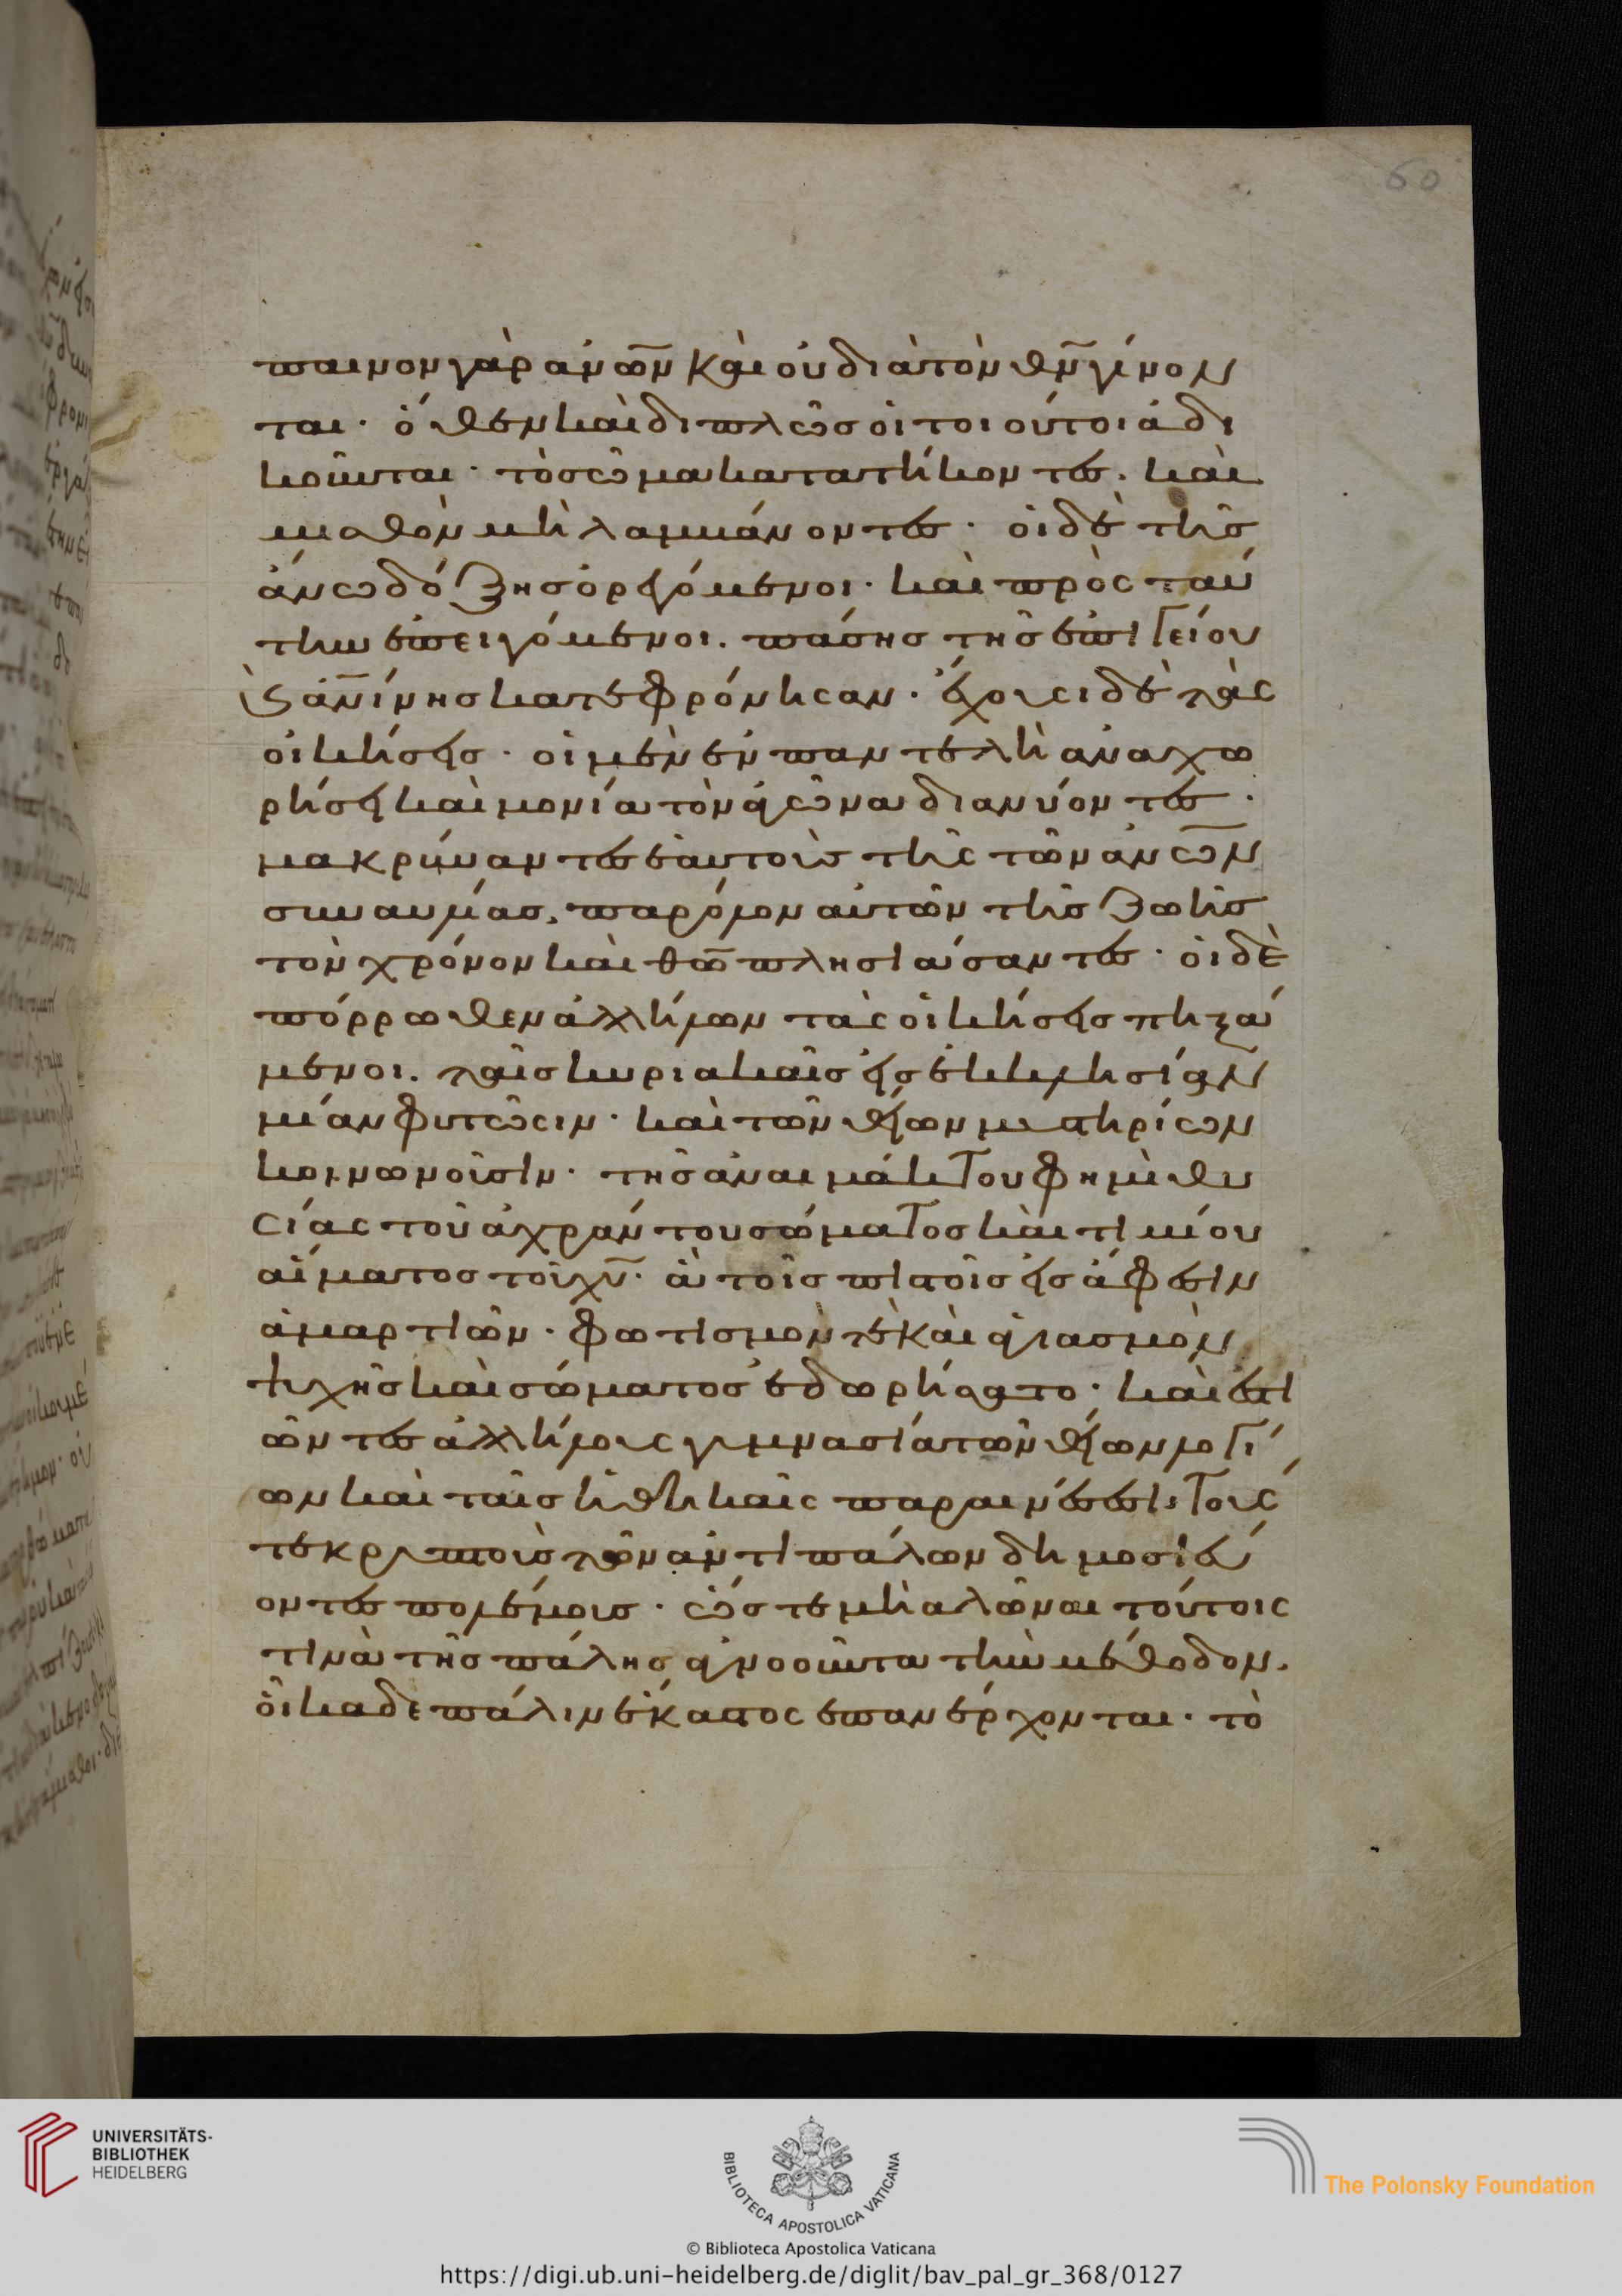 60
παινον γὰρ ἀν̅ων καὶ οὐ διὰ τὸν θν̅ γίνον
ται· ὅθεν καὶ διπλῶς οἱ τοιοῦτοι ἀδι
κοῦνται· τὸ σῶμα κατατήκοντες. καὶ
μισθὸν μὴ λαμβάνοντες· οἱ δὲ τῆς
ἄνω δόξης ὀρεγόμενοι· καὶ πρὸς ταύ
την ἐπειγόμενοι. πάσης τῆς ἐπιγείου
καὶ ἀν̅ίνης κατεφρόνησαν· ἔχουσι δὲ τὰς
οἰκήσεις· οἱ μὲν ἐν παντελῆ ἀναχω
ρήσει καὶ μονία τὸν ἀγῶνα διανύοντες·
μακρύναντες ἑαυτοὺς τῆς τῶν ἀν̅ων
συναυλίας, παρόλον αὐτῶν τῆς ζωῆς
τὸν χρόνον καὶ θω̅ πλησιάσαντες· οἱ δὲ
πόρρωθεν ἀλλήλων τὰς οἰκήσεις πηξά
μενοι. ταῖς κυριακαῖς εἰς ἐκκλησίαν
μίαν φοιτῶσιν· καὶ τῶν θείων μυστηρίων
κοινωνοῦσιν· τῆς ἀναιμάκτου φημὶ θυ
σίας τοῦ ἀχράντου σώματος καὶ τιμίου
αἵματος τοῦ χυ̅· ἃ τοῖς πιστοῖς εἰς ἄφεσιν
ἁμαρτιῶν· φωτισμὸν τὲ καὶ ἁγιασμὸν
ψυχῆς καὶ σώματος ἐδωρήσατο· καὶ ἑστι
ῶντες ἀλλήλους γυμνασία τῶν θείων λογί
ων καὶ ταῖς ἠθικαῖς παραινέσεσι· τούς
τε κρυπτοὺς τῶν ἀντιπάλων δημοσιεύ
οντες πολέμους· ὥστε μὴ ἁλῶναι τούτοις
τινὰ τῆς πάλης ἀγνοοῦντα τὴν μέθοδον.
οἴκαδε πάλιν ἕκαστος ἐπανέρχονται· τὸ
UNIVERSITÄTS-
BIBLIOTHEK
HEIDELBERG
BIBLIOTECA APOSTOLICA VATICANA
The Polonsky Foundation
© Biblioteca Apostolica Vaticana
https://digi.ub.uni-heidelberg.de/diglit/bav_pal_gr_368/0127